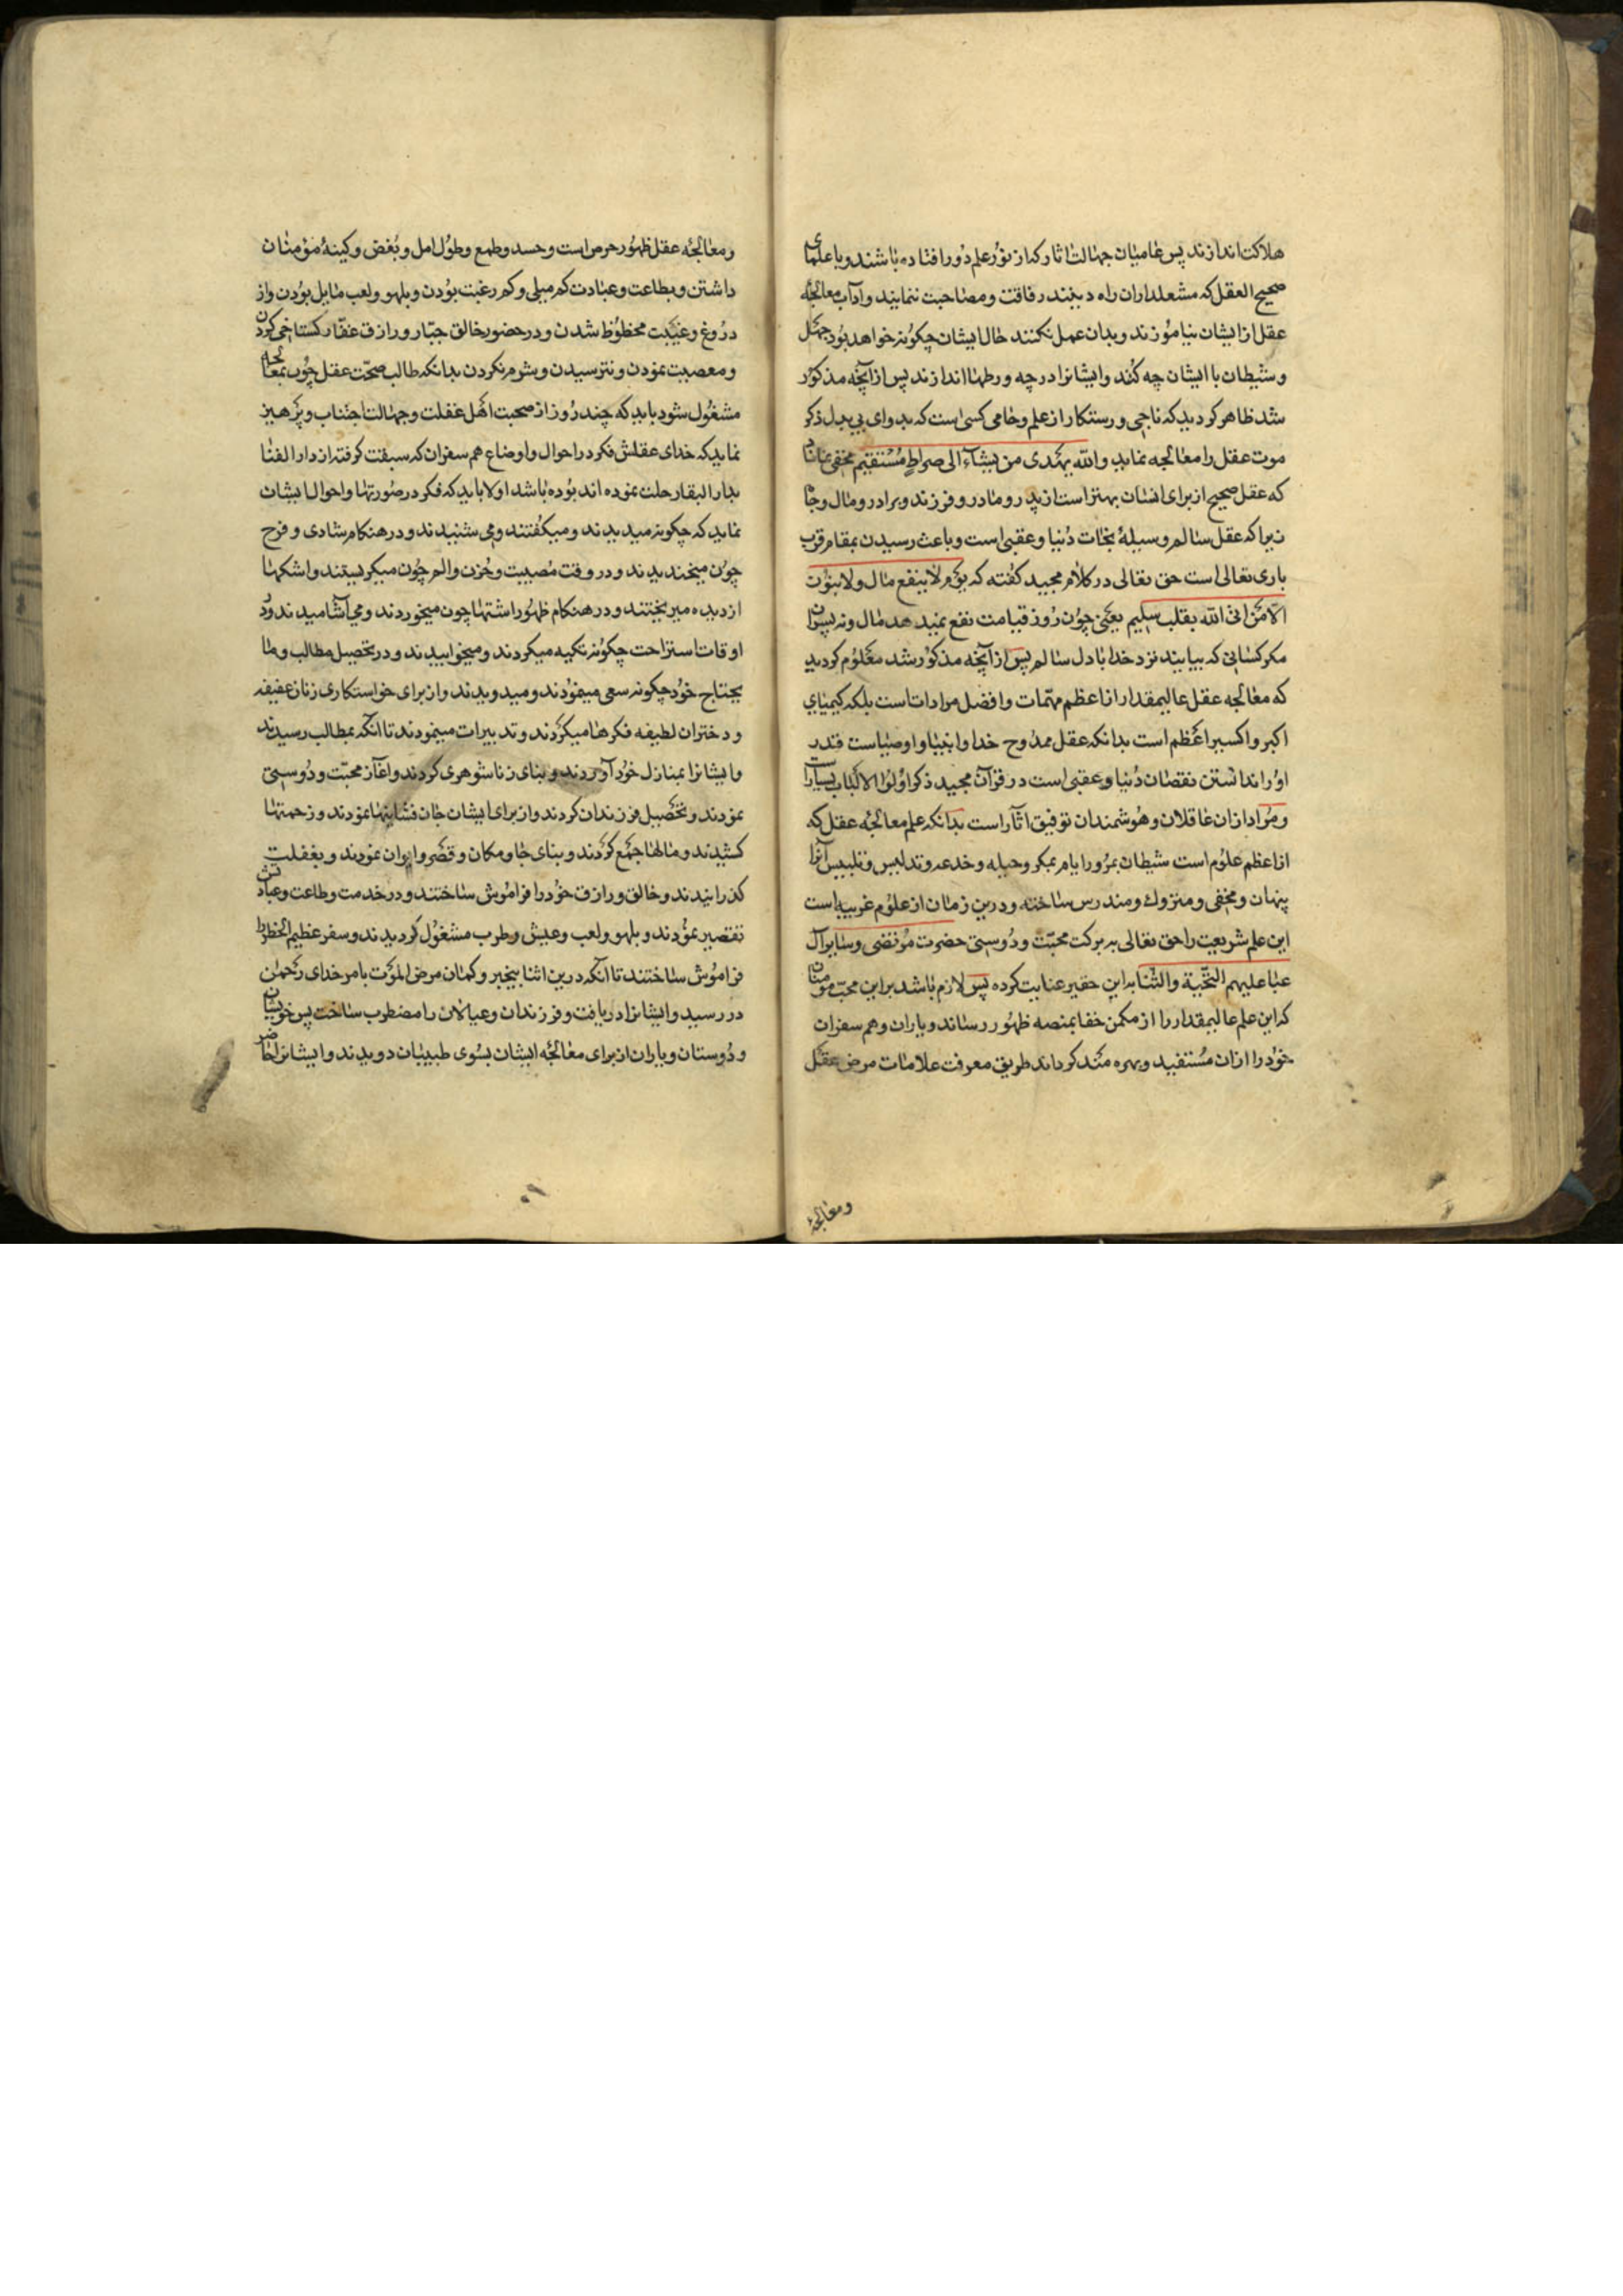 هلاکت اندازند پس عامیان جهالت اثار که از نور علم دور افتاده باشند و با علمای
صحیح العقل که مشعلداران راه دینند رفاقت و مصاحبت ننمایند و آداب معالجهٔ
عقل از ایشان نیاموزند و بدان عمل نکنند حال ایشان چکونه خواهد بود جهل
و شیطان با ایشان چه کند و ایشانرا در چه ورطها اندازند پس از آنچه مذکور
شد ظاهر کردید که ناجی و رستکار از علم و حامی کسی است که بدوای بی بدل ذکر
موت عقل را معالجه نماید والله یهدی من یشاء الی صراط مستقیم مخفی نماناد
که عقل صحیح از برای انسان بهتر است از پدر و مادر و فرزند و برادر و مال و جاه
زیرا که عقل سالم وسیلهٔ نجات دنیا و عقبی است و باعث رسیدن بمقام قرب
باری تعالی است حق تعالی در کلام مجید کفته که یوم لا ینفع مال ولا بنون
الا من اتی الله بقلب سلیم یعنی چون روز قیامت نفع نمیدهد مال و نه پسران
مکر کسانی که بیایند نزد خدا با دل سالم پس از آنچه مذکور شد معلوم کردید
که معالجه عقل عالیمقدار از اعظم مهمّات و افضل مرادات است بلکه کیمیای
اکبر و اکسیر اعظم است بدانکه عقل ممدوح خدا و انبیا و اوصیاست قدر
او را ندانستن نقصان دنیا و عقبی است در قرآن مجید ذکر اولوا الالباب بسیار است
و مراد ازان عاقلان و هوشمندان توفیق اثار است بدانکه علم معالجهٔ عقل که
از اعظم علوم است شیطان بمرور ایام بمکر و حیله و خدعه و تدلیس و تلبیس آنرا
پنهان و مخفی و متروک و مندرس ساخته و درین زمان از علوم غریبه است
این علم شریعت را حق تعالی به برکت محبّت و دوستی حضرت مرتضی و سایر آل
عبا علیهم التحیّة والثنا به این حقیر عنایت کرده پس لازم باشد بر این محب مومنان
که این علم عالیمقدار را از مکمن خفا بمنصه ظهور رساند و یاران و هم سفران
خود را ازان مستفید و بهره مند کرداند طریق معرفت علامات مرض عقل
ومعالجهٔ
ومعالجهٔ عقل ظهور حرص است و حسد و طمع و طول امل و بغض و کینهٔ مومنان
داشتن و بطاعت و عبادت کم میلی و کم رغبت بودن و بلهو و لعب مایل بودن و از
دروغ و غیبت محظوظ شدن و در حضور خالق جبّار و رازق غفّار کستاخی کردن
و معصیت نمودن و نترسیدن و شرم نکردن بدانکه طالب صحّت عقل چون بمعالجه
مشغول شود باید که چند روز از صحبت اهل غفلت و جهالت اجتناب و پرهیز
نماید که خدای عقلش فکر در احوال و اوضاع هم سفران که سبقت کرفته از دار الفنا
بدار البقا رحلت نموده اند بوده باشد اولا باید که فکر در صورتها و احوال ایشان
نماید که چکونه میدیدند و میکفتند و می شنیدند و در هنکام شادی و فرح
چون میخندیدند و در وقت مصیبت و حزن و الم چون میکریستند و اشکها
از دیده میریختند و در هنکام ظهور اشتها چون میخوردند و می آشامیدند و در
اوقات استراحت چکونه تکیه میکردند و میخوابیدند و در تحصیل مطالب و ما
یحتاج خود چکونه سعی مینمودند و میدویدند و از برای خواستکاری زنان عفیفه
و دختران لطیفه فکرها میکردند و تدبیرات مینمودند تا انکه بمطالب رسیدند
و ایشانرا بمنازل خود آوردند و بنای زناشوهری کردند و اغاز محبّت و دوستی
نمودند و تحصیل فرزندان کردند و از برای ایشان جان فشانیها نمودند و زحمتها
کشیدند و مالها جمع کردند و بنای جا و مکان و قصر و ایوان نمودند و بغفلت
کذرانیدند و خالق و رازق خود را فراموش ساختند و در خدمت و طاعت و عبادتش
تقصیر نمودند و بلهو و لعب و عیش و طرب مشغول کردیدند و سفر عظیم الخطر را
فراموش ساختند تا آنکه درین اثنا بیخبر و کمان مرض الموت بامر خدای رحمن
در رسید و ایشانرا دریافت و فرزندان و عیالان را مضطرب ساخت پس خویشان
و دوستان و یاران از برای معالجهٔ ایشان بسوی طبیبان دویدند و ایشانرا حاضر